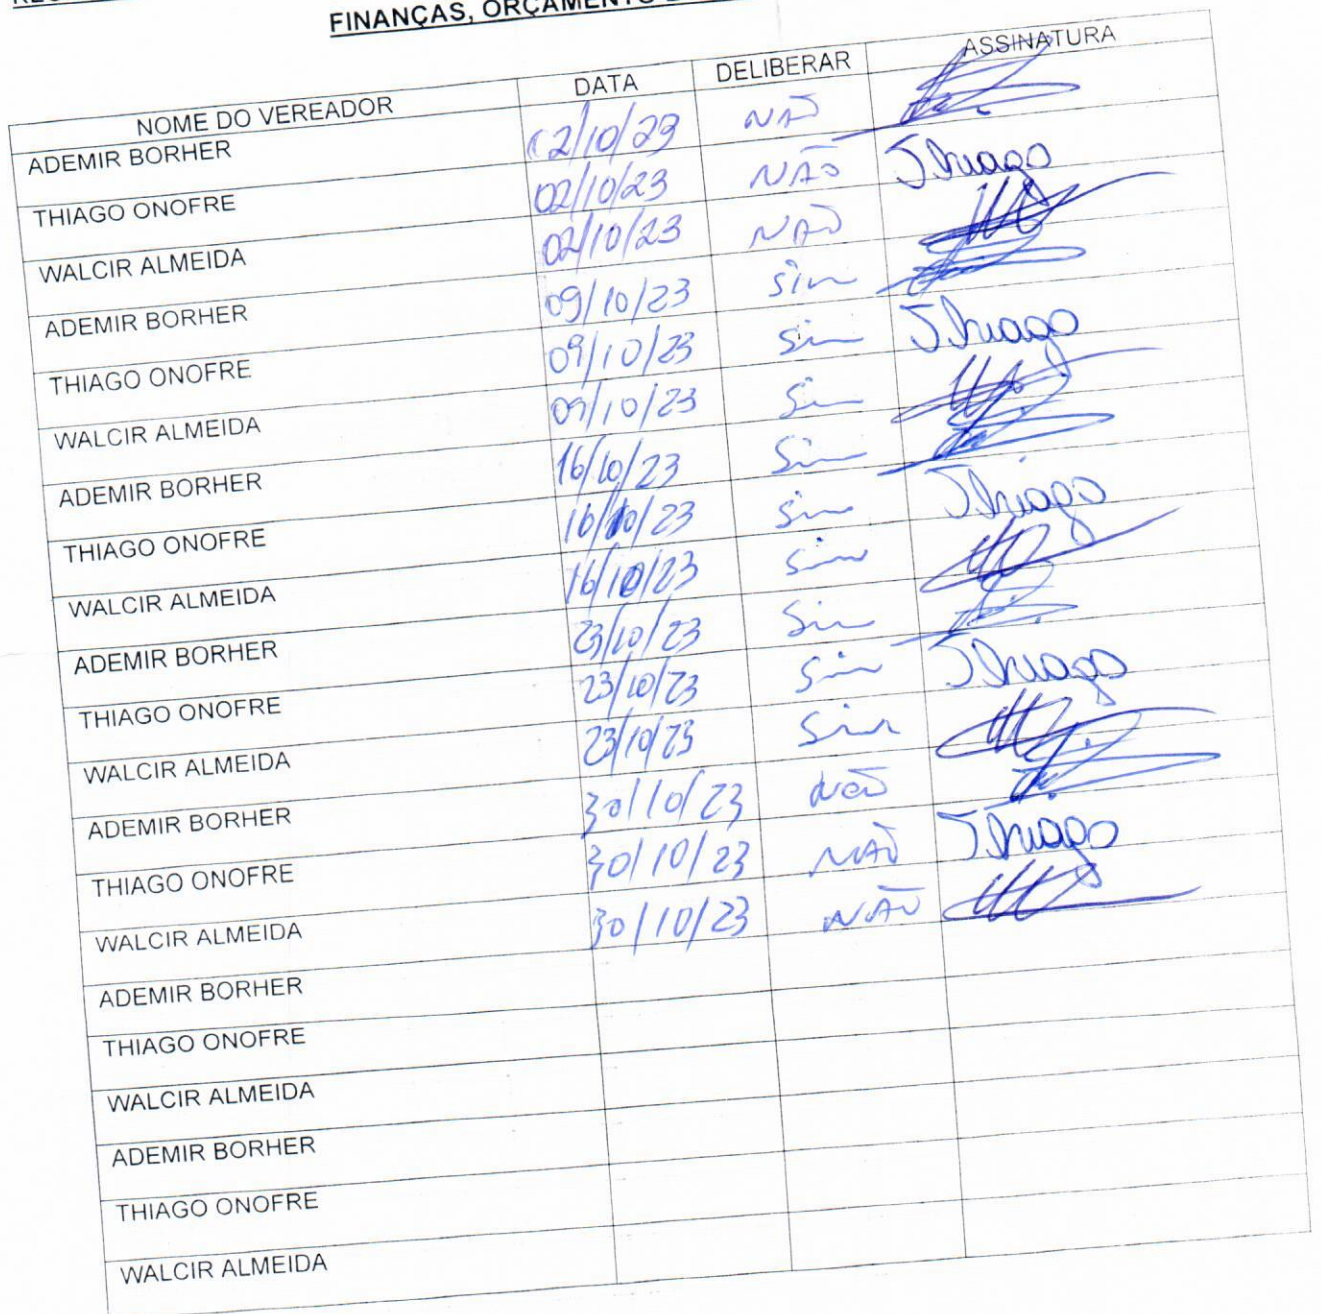 FINANÇAS, ORÇAMENTO
NOME DO VEREADOR DATA DELIBERAR ASSINATURA
ADEMIR BORHER 02/10/23 NÃO
THIAGO ONOFRE 02/10/23 NÃO Thiago
WALCIR ALMEIDA 02/10/23 NÃO
ADEMIR BORHER 09/10/23 sim
THIAGO ONOFRE 09/10/23 sim Thiago
WALCIR ALMEIDA 09/10/23 sim
ADEMIR BORHER 16/10/23 sim
THIAGO ONOFRE 16/10/23 sim Thiago
WALCIR ALMEIDA 16/10/23 sim
ADEMIR BORHER 23/10/23 sim
THIAGO ONOFRE 23/10/23 sim Thiago
WALCIR ALMEIDA 23/10/23 sim
ADEMIR BORHER 30/10/23 não
THIAGO ONOFRE 30/10/23 NÃO Thiago
WALCIR ALMEIDA 30/10/23 NÃO
ADEMIR BORHER
THIAGO ONOFRE
WALCIR ALMEIDA
ADEMIR BORHER
THIAGO ONOFRE
WALCIR ALMEIDA